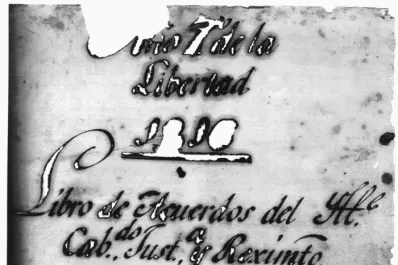 Año 1º de la
Libertad
1810
Libro de Acuerdos del Ill.e
Cab.do Just.a y Reximto